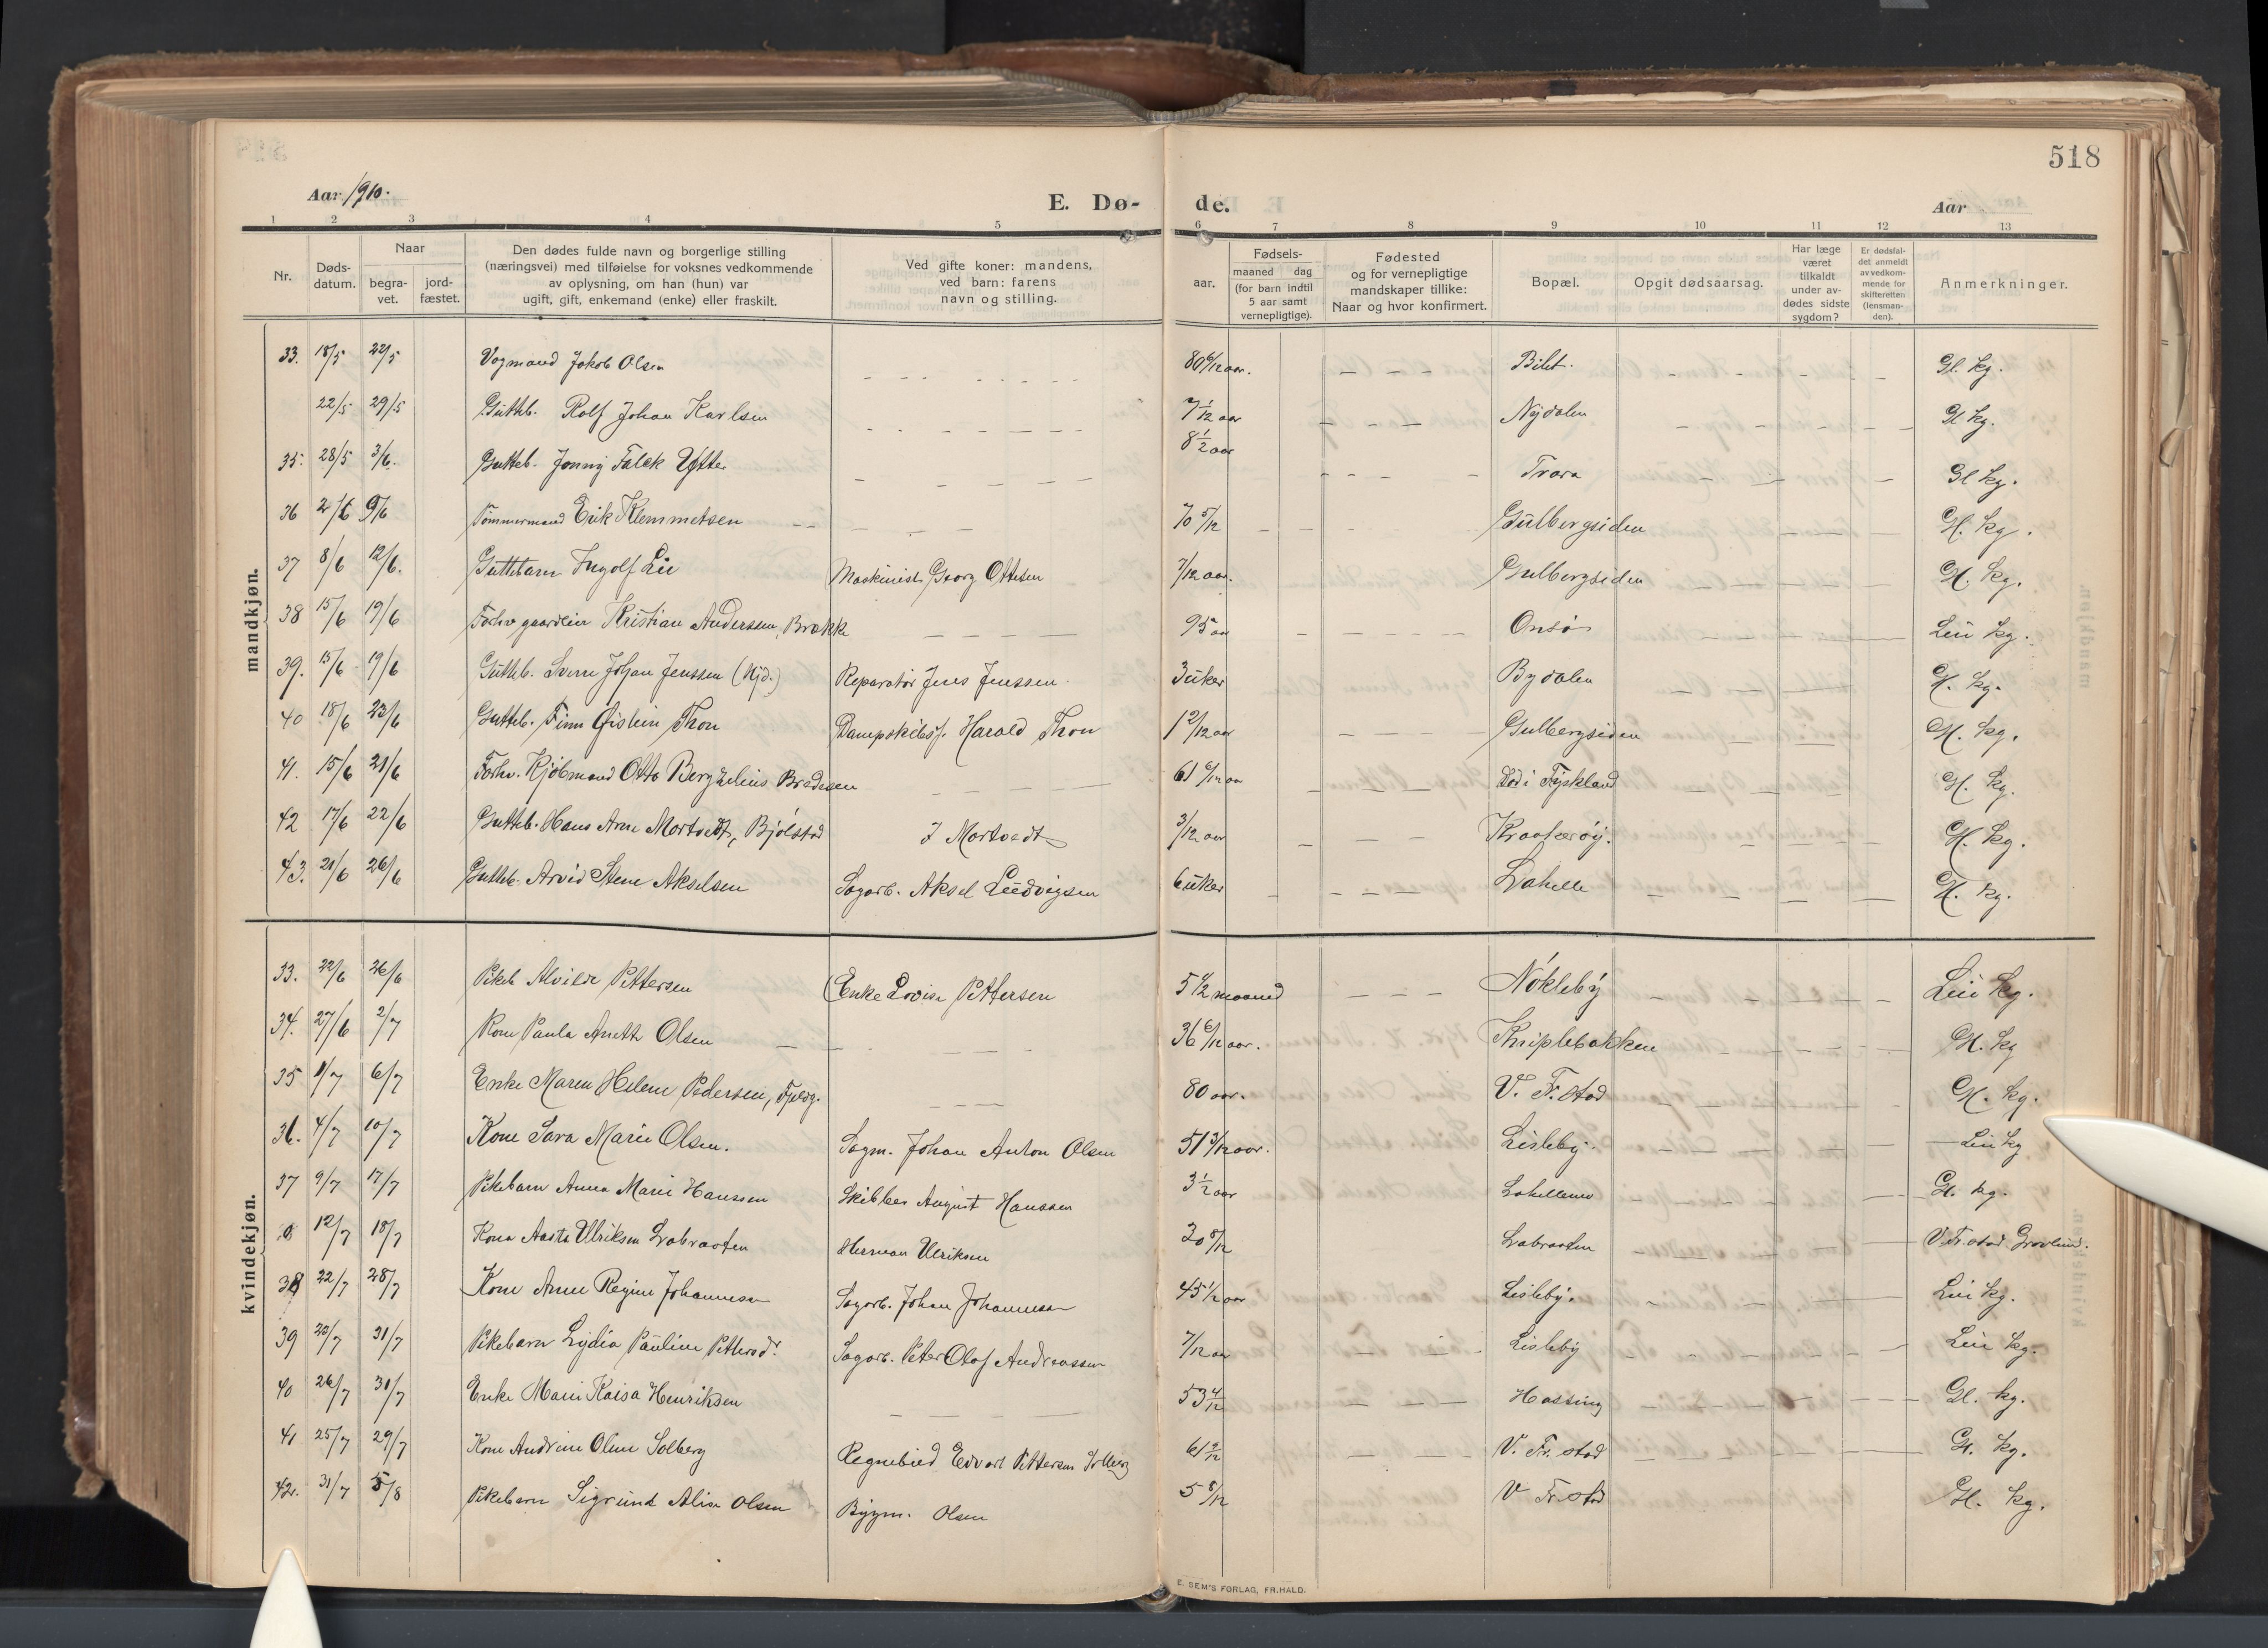 518
Aar 1910.
E. Dø- de.
Aar
1 2 3 4 5 6 7 8 9 10 11 12 13
Nr.
Døds-
datum.
Naar
begra-
vet.
jord-
fæstet.
Den dødes fulde navn og borgerlige stilling
(næringsvei) med tilføielse for voksnes vedkommende
av oplysning, om han (hun) var
ugift, gift, enkemand (enke) eller fraskilt.
Ved gifte koner: mandens,
ved barn: farens
navn og stilling.
aar.
Fødsels-
maaned dag
(for barn indtil
5 aar samt
vernepligtige).
Fødested
og for vernepligtige
mandskaper tillike:
Naar og hvor konfirmert.
Bopæl.
Opgit dødsaarsag.
Har læge
været
tilkaldt
under av-
dødes sidste
sygdom?
Er dødsfal-
det anmeldt
av vedkom-
mende for
skifteretten
(lensman-
den).
Anmerkninger.
mandkjøn.
33. 18/5 22/5 Vogmand Jakob Olsen 80 6/12 aar. Bilet. Gl. kg.
22/5 29/5 Gutteb. Rolf Johan Karlsen 7 1/12 aar Nydalen Gl kg.
35. 28/5 3/6. Gutteb. Jonny Falck Ytter 8 1/2 aar Trara Gl kg.
36 2/6 9/6 Tømmermand Erik Klemmetsen 70 5/12 Gulbergsiden Gl. kg.
37 8/6 12/6. Guttebarn Ingolf Lie Maskinist Georg Ottesen 7/12 aar. Gulbergsiden Gl. kg.
38 15/6 19/6 Forhv gaardeier Kristian Andersen, Brække 95 aar Onsø Leie kg.
39. 15/6 19/6 Gutteb. Sverre Johan Jenssen (Nyd.) Reparatør Jens Jenssen. 3 uker Bydalen Gl. kg.
40 18/6 23/6 Gutteb. Finn Øistein Thon Dampskibsf. Harald Thon Gulbergsiden Gl. kg.
41. 15/6 21/6 Forhv. Kjøbmand Otto Berzhelius Bredesen 61 6/12 aar Død i Tyskland Gl. kg.
42 17/6 22/6 Gutteb. Hans Arne Mortvedt, Bjølstad J Mortvedt 3/12 aar Kraakerøy. Gl. kg.
43. 21/6 26/6 Gutteb. Arvid Stene Akselsen Sagarb. Aksel Ludvigsen 6 uker Lahelle Gl. kg.
kvindekjøn.
33. 22/6 26/6 Pikeb Alvilde Pettersen (Enke Lovise Pettersen 5 1/2 maaned Nökleby Leie kg.
34. 27/6 2/7 Kone Paula Anette Olsen 36 6/12 aar. Kriplebakken Gl. kg
35 1/7 6/7 Enke Maren Helene Pedersen, Fjeldg. 80 aar. V. Fr.stad Gl. kg.
36. 4/7 10/7 Kone Sara Marie Olsen. Sagm. Johan Anton Olsen 51 3/12 aar. Lisleby. Leie kg
37 9/7 17/7 Pikebarn Anna Marie Hanssen Skibber August Hanssen 3 1/2 aar Lahellemo Gl. kg.
12/7 18/7 Kone Aasta Ulriksen Labraaten Herman Ulriksen 30 8/12 Labraaten V. Fr.stad Gravlund.
38 22/7 28/7 Kone Anne Regine Johannesen Sagarb. Johan Johannesen 45 1/2 aar Lisleby. Leie kg.
39 23/7 31/7 Pikebarn Lydia Pauline Pettersdr. Sagarb. Peter Olaf Andreassen 7/12 aar Lisleby Leie kg.
40 26/7 31/7 Enke Marie Kaisa Henriksen 53 4/12 Hassing Gl. kg.
41 25/7 29/7 Kone Andrine Oline Solberg Regnebud Edvart Pettersen Solberg 61 9/12 V. Fr.stad Gl. kg.
42. 31/7 5/8 Pikebarn Sigrund Alise Olsen Bygm. Olsen 5 8/12 V Fr.stad Gl. kg.
E. SEM'S FORLAG, FR.HALD.